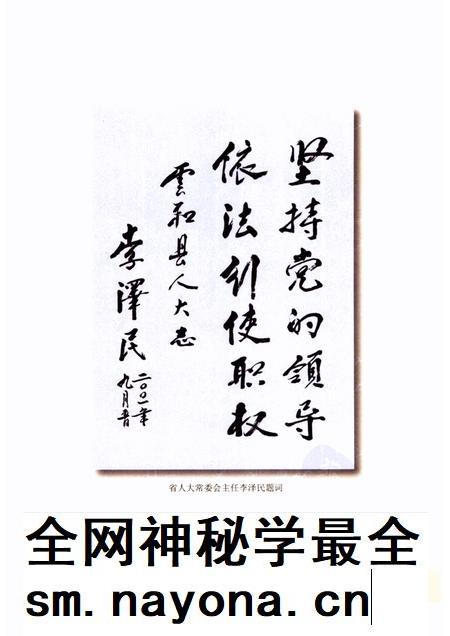 坚持党的領导
依法行使职权
雲和县人大志
李澤民
二〇〇一年
九月
省人大常委会主任李泽民题词
全网神秘学最全
sm.nayona.cn